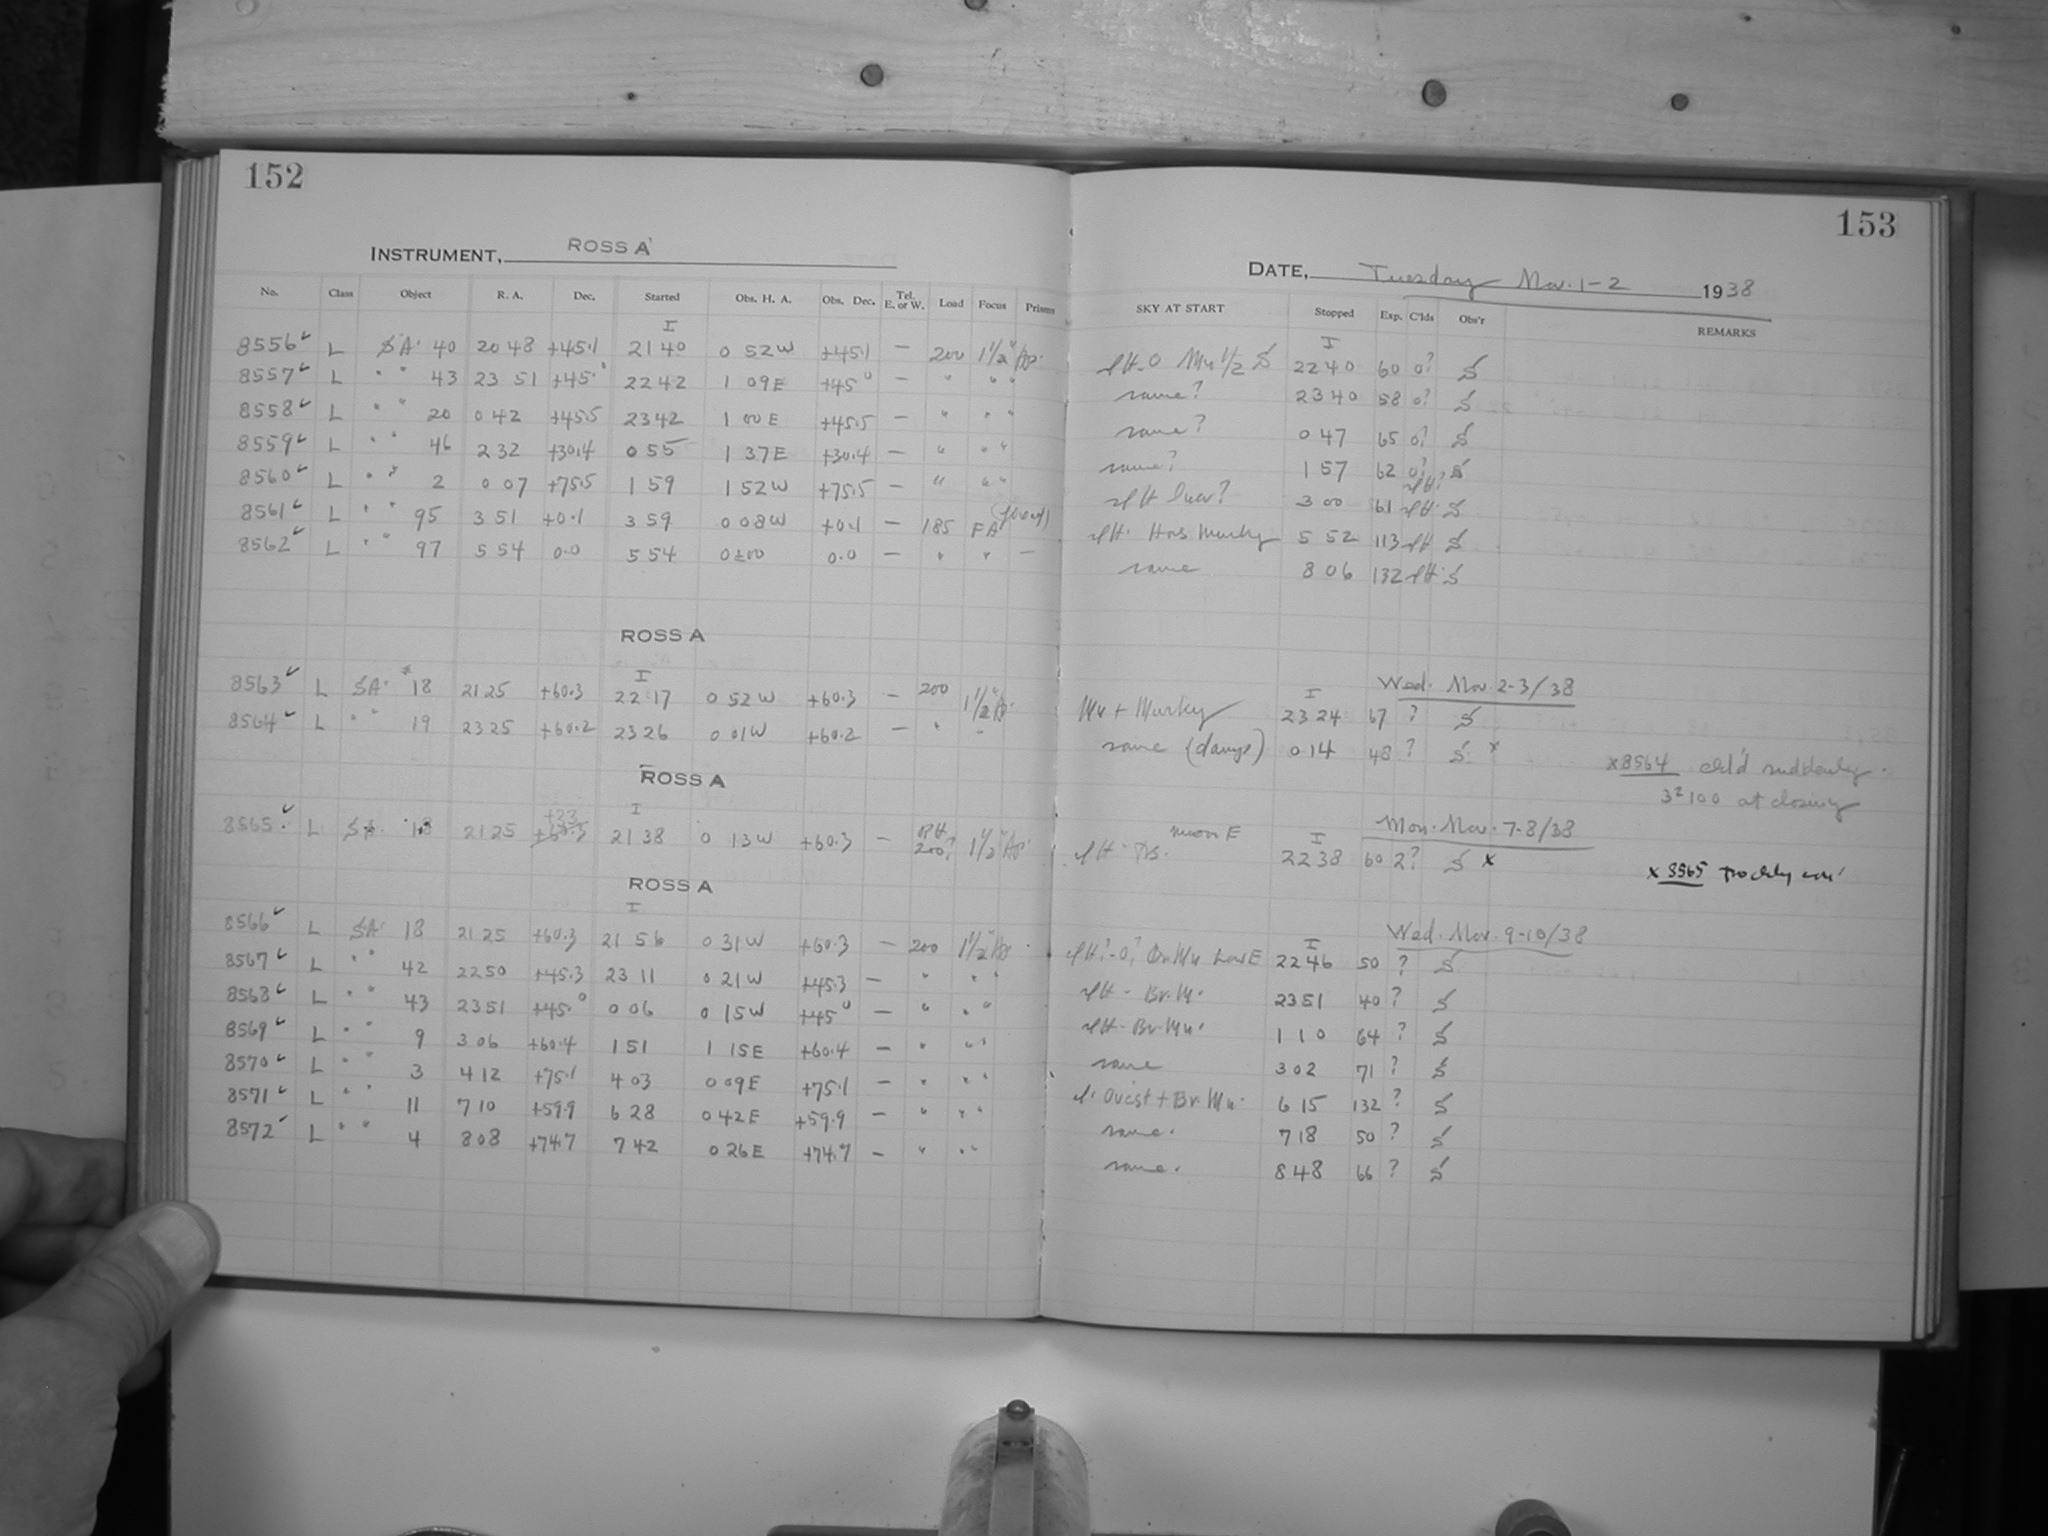 152
INSTRUMENT, ROSS A
No. Class Object R. A. Dec. Started Obs. H. A. Obs. Dec. Tel. E. or W. Load Focus Prisms
I
8556 L SA 40 20 48 +45.1 21 40 0 52 W +45.1 — 200 1 1/2" Ap.
8557 L " " 43 23 51 +45.0 22 42 1 09 E +45 0 — " " "
8558 L " " 20 0 42 +45.5 23 42 1 00 E +45.5 — " " "
8559 L " " 46 2 32 +30.4 0 55 1 37 E +30.4 — " " "
8560 L " " 2 0 07 +75.5 1 59 1 52 W +75.5 — " " "
8561 L " " 95 3 51 +0.1 3 59 0 08 W +0.1 — 185 FA
8562 L " " 97 5 54 0.0 5 54 0±00 0.0 — " " —
ROSS A
I
8563 L SA 18 21 25 +60.3 22 17 0 52 W +60.3 — 200 1 1/2" Ap.
8564 L " " 19 23 25 +60.2 23 26 0 01 W +60.2 — " "
ROSS A
I
8565 L SA 18 21 25 +60.3 21 38 0 13 W +60.3 — 200? 1 1/2" Ap.
ROSS A
I
8566 L SA 18 21 25 +60.3 21 56 0 31 W +60.3 — 200 1 1/2" Ap.
8567 L " " 42 22 50 +45.3 23 11 0 21 W +45.3 — " " "
8568 L " " 43 23 51 +45.0 0 06 0 15 W +45 0 — " " "
8569 L " " 9 3 06 +60.4 1 51 1 15 E +60.4 — " " "
8570 L " " 3 4 12 +75.1 4 03 0 09 E +75.1 — " " "
8571 L " " 11 7 10 +59.9 6 28 0 42 E +59.9 — " " "
8572 L " " 4 8 08 +74.7 7 42 0 26 E +74.7 — " " "
153
DATE, Tuesday Nov. 1-2 1938
SKY AT START Stopped Exp. C'lds Obs'r REMARKS
I
1/2 S 22 40 60 0? S
same? 23 40 58 0? S
same? 0 47 65 0? S
same? 1 57 62 0? S
3 00 61 S
Hrs Murky 5 52 113 S
same 8 06 132 S
Wed. Nov. 2-3/38
I
Mn + Murky 23 24 67 ? S
same (damp) 0 14 48 ? S x
x 8564 cld'd suddenly.
at closing
Mon. Nov. 7-8/38
moon E I
22 38 60 2? S x
x 8565
Wed. Nov. 9-10/38
I
Low E 22 46 50 ? S
Br. Mn. 23 51 40 ? S
Br. Mn. 1 10 64 ? S
same 3 02 71 ? S
+ Br. Mn. 6 15 132 ? S
same. 7 18 50 ? S
same. 8 48 66 ? S